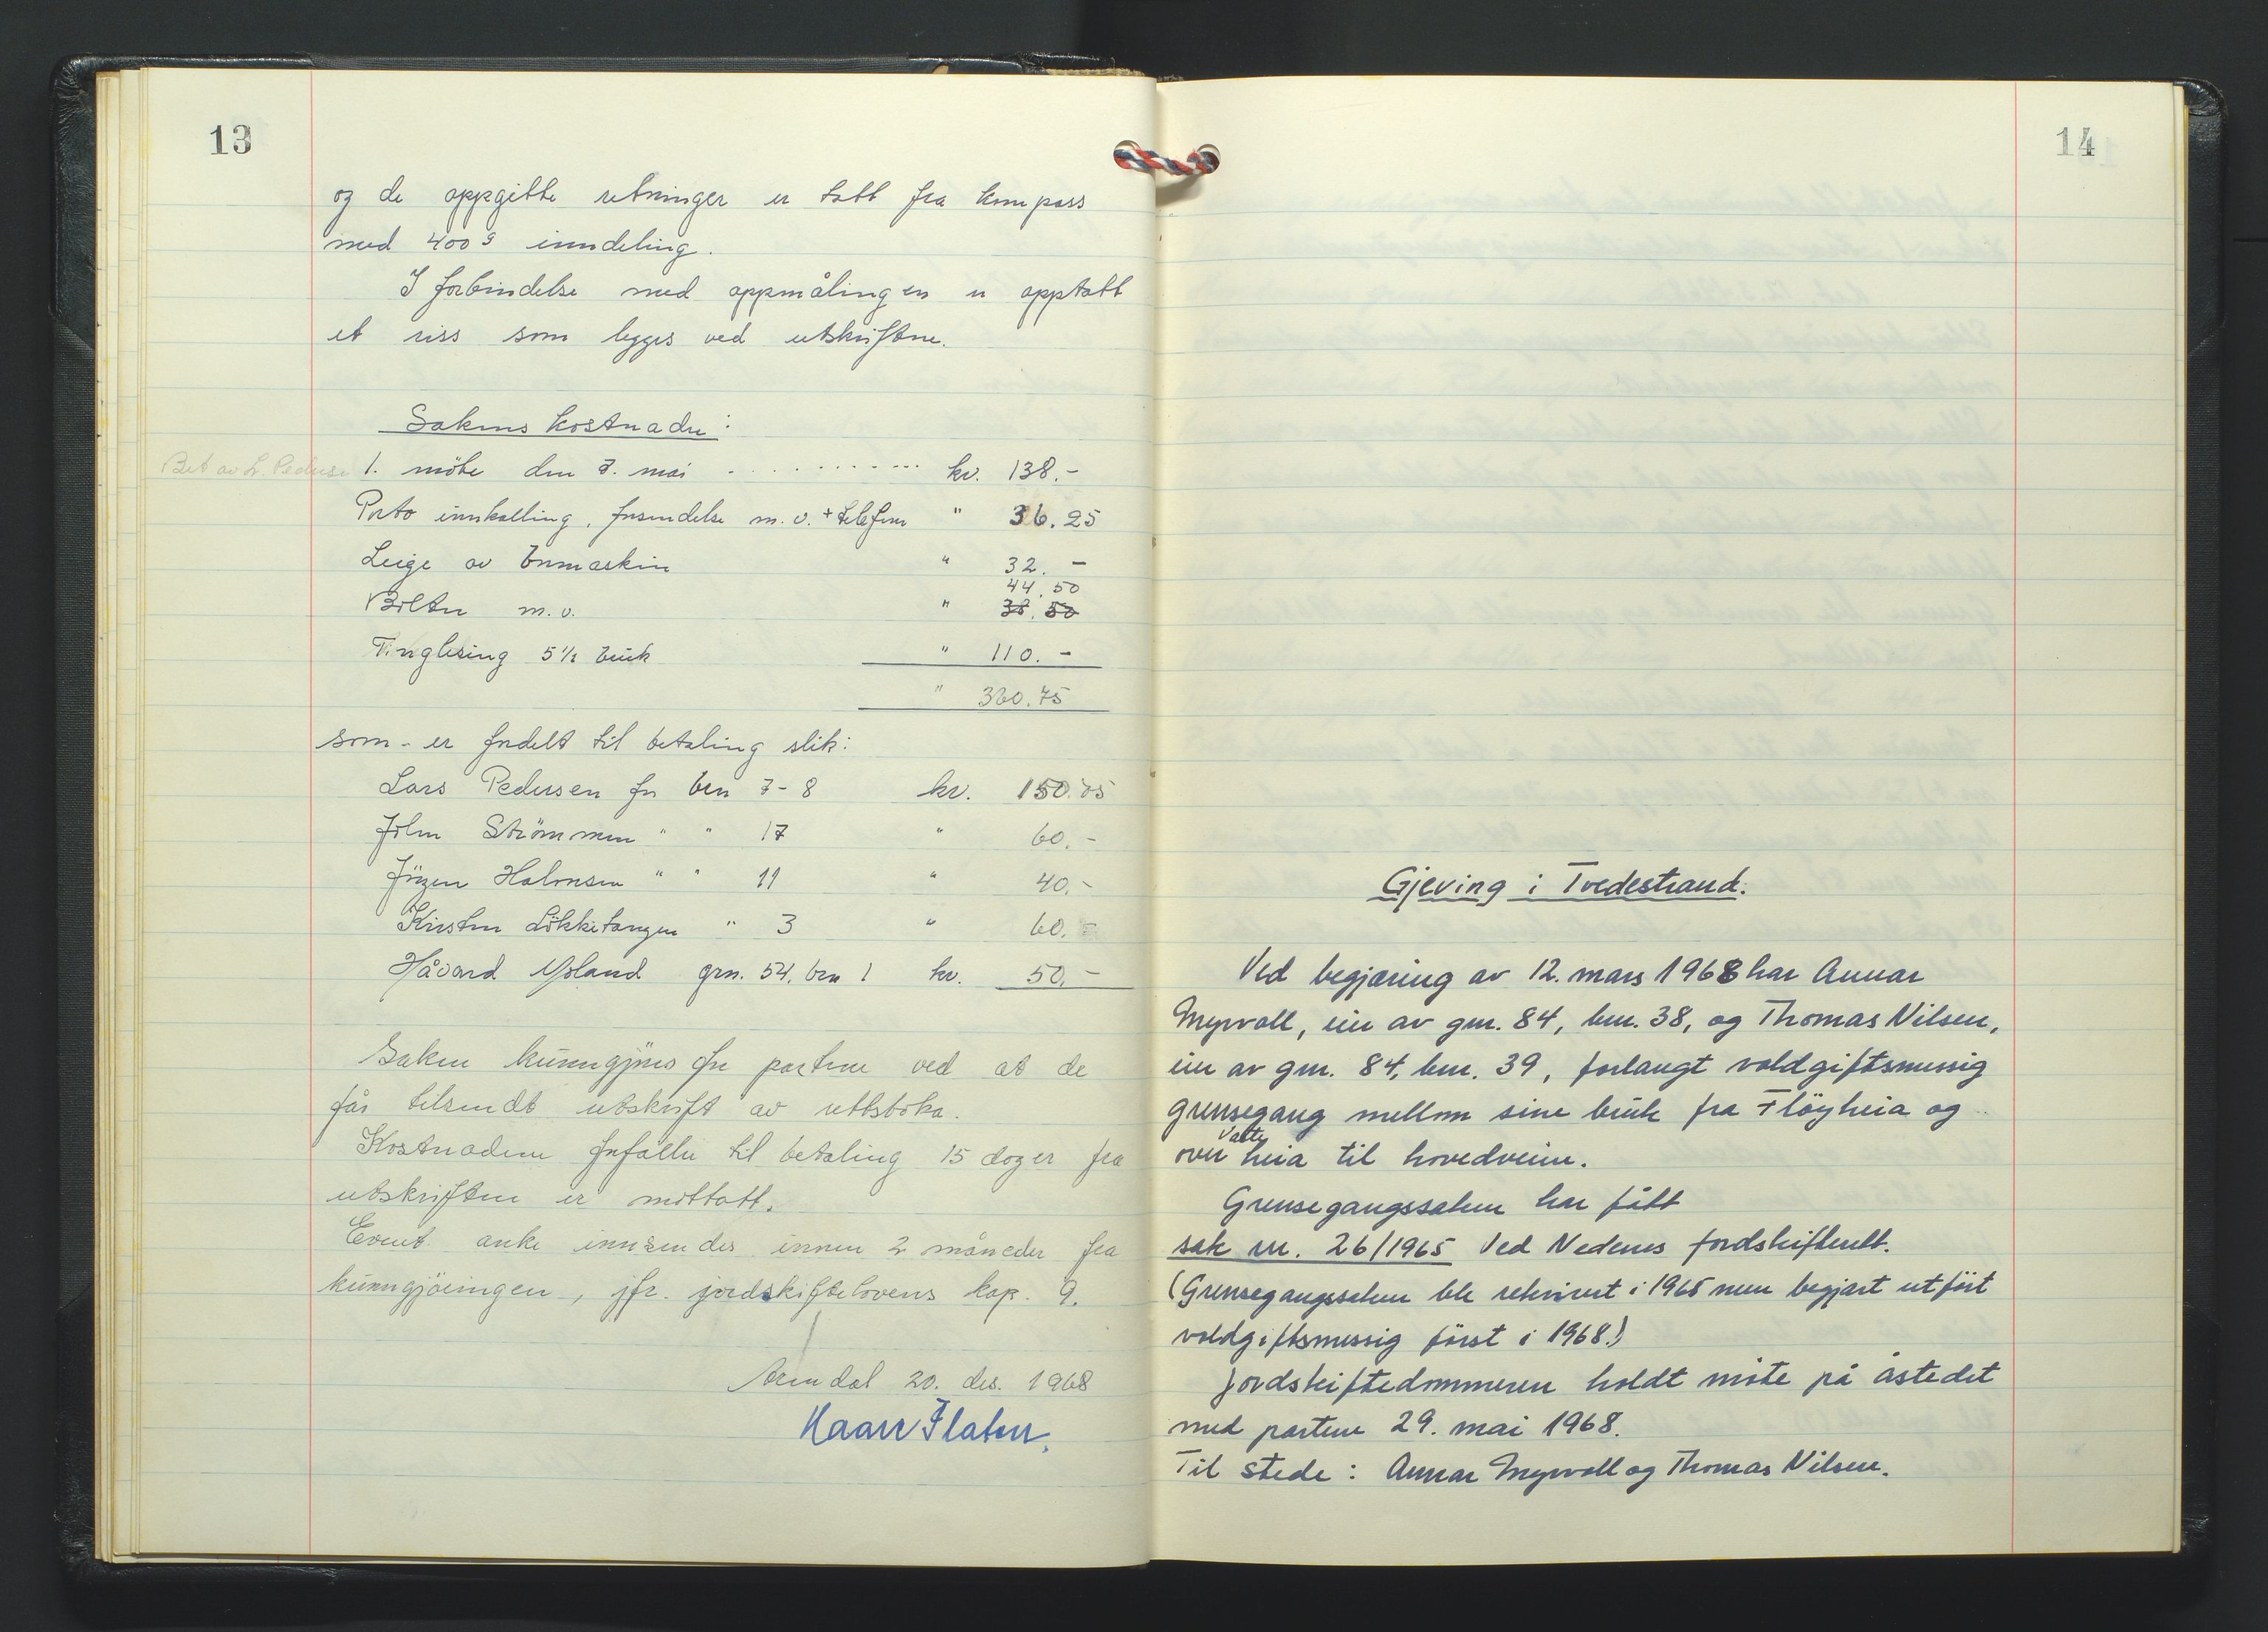 13
og de oppgitte retninger er tatt fra kompass
med 400 g inndeling.
I forbindelse med oppmålingen er opptatt
et riss som legges ved utskriftene.
Sakens kostnader:
Bet av L. Pedersen 1. möte den 7. mai . . . . . . . . . . kr. 138.-
Porto innkalling, forsendelse m. v. + telefon " 36.25
Leige av bormaskin " 32.-
44.50
Bolter m. v. " 38.50
Tinglesing 5 1/2 bruk " 110.-
" 360.75
som er fordelt til betaling slik:
Lars Pedersen for bnr 7-8 kr. 150.75
John Strömmen " " 17 " 60.-
Jörgen Halvorsen " " 11 " 40.-
Kirsten Lökketangen " 3 " 60.-
Håvard Ysland grn. 54, bnr 1 kr. 50.-
Saken kunngjöres for partene ved at de
får tilsendt utskrift av rettsboka.
Kostnadene forfaller til betaling 15 dager fra
utskriften er mottatt.
Event anke innsendes innen 2 måneder fra
kunngjöringen, jfr. jordskiftelovens kap. 9.
Arendal 20. des. 1968
Kaare Flaten.
14
Gjeving i Tvedestrand.
Ved begjæring av 12. mars 1968 har Annar
Myrvoll, eier av gnr. 84, bnr. 38, og Thomas Nilsen,
eier av gnr. 84, bnr. 39, forlangt voldgiftsmessig
grensegang mellom sine bruk fra Flöyheia og
Vatte
over heia til hovedveien.
Grensegangssaken har fått
sak nr. 26/1965 ved Nedenes jordskifterett.
(Grensegangssaken ble rekvirert i 1965 men begjært utfört
voldgiftsmessig först i 1968.)
Jordskiftedommeren holdt möte på åstedet
med partene 29. mai 1968.
Til stede: Annar Myrvoll og Thomas Nilsen.